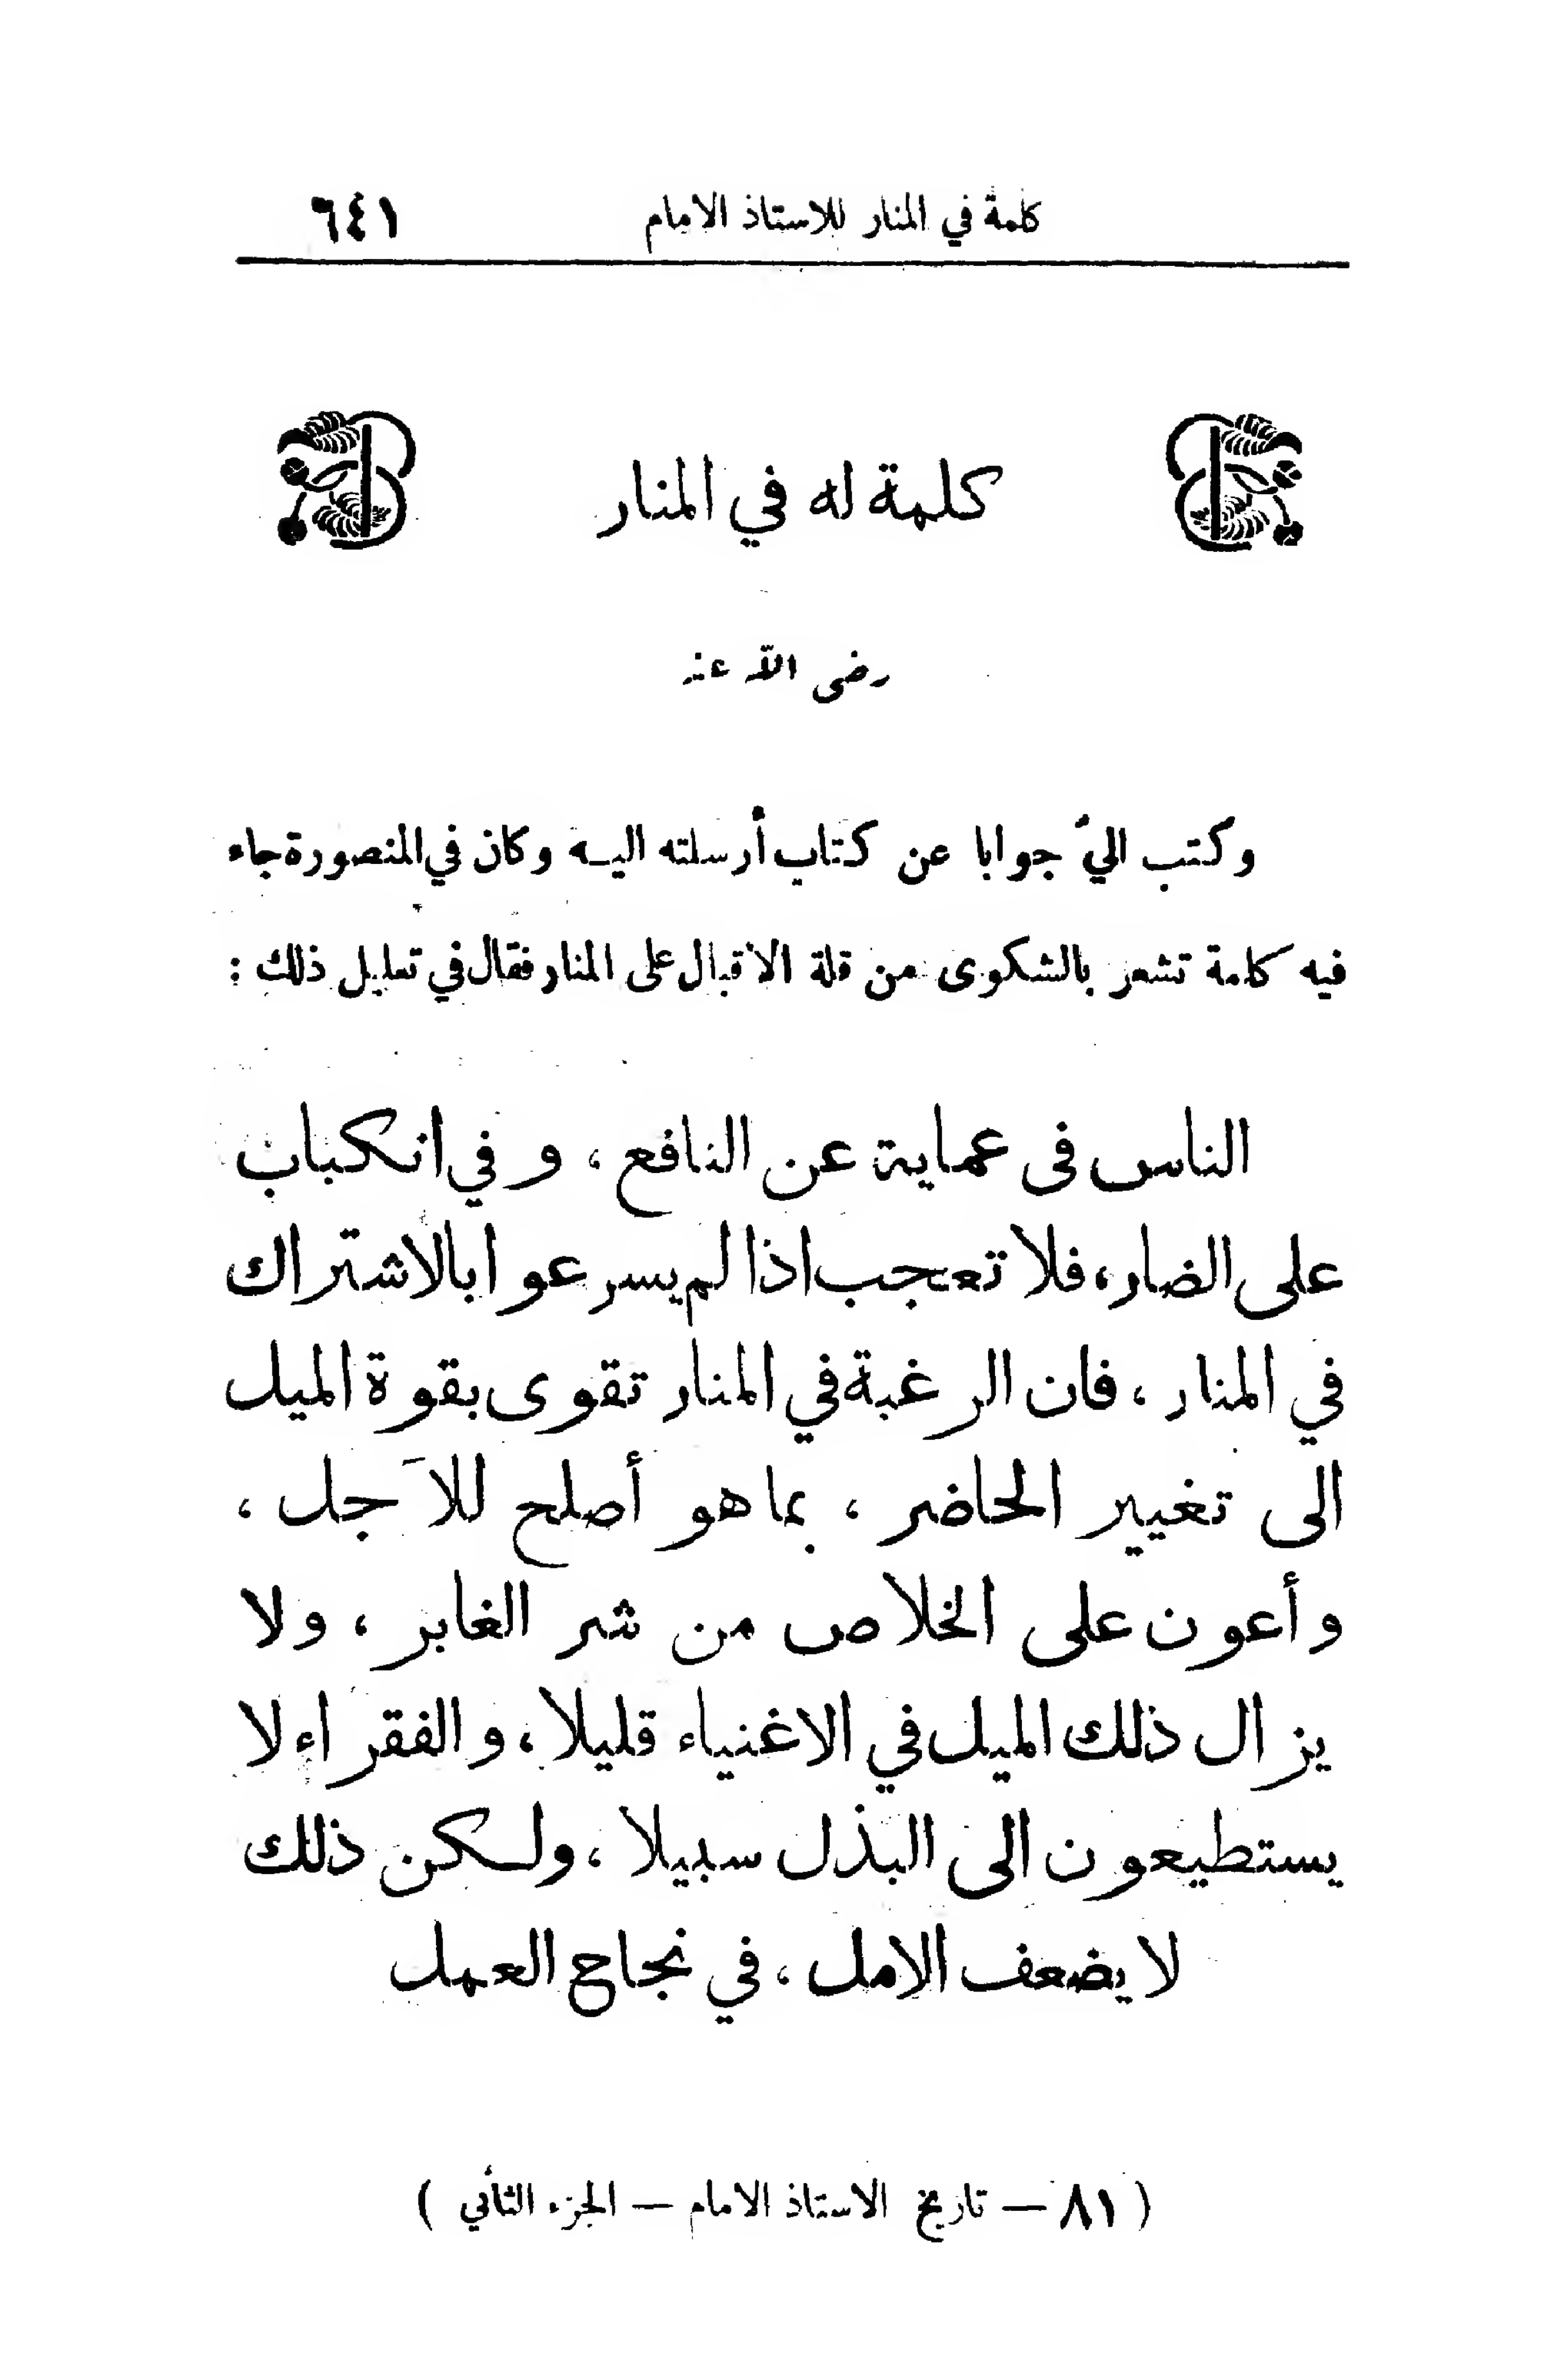 كلمة في المنار للاستاذ الامام ٦٤١
كلمة له في المنار
رضى الله عنه
وكتب اليّ جوابا عن كتاب أرسلته اليه وكان في المنصورة جاء
فيه كلمة تشعر بالشكوى من قلة الاقبال على المنار فقال في تعليل ذلك :
الناس فى عماية عن النافع ، وفي انكباب
على الضار، فلا تعجب اذا لم يسرعوا بالاشتراك
في المنار ، فان الرغبة في المنار تقوى بقوة الميل
الى تغيير الحاضر ، بما هو أصلح للآجل ،
وأعون على الخلاص من شر الغابر ، ولا
يزال ذلك الميل في الاغنياء قليلا ، والفقراء لا
يستطيعون الى البذل سبيلا ، ولكن ذلك
لا يضعف الامل ، في نجاح العمل
( ٨١ — تاريخ الاستاذ الامام — الجزء الثاني )